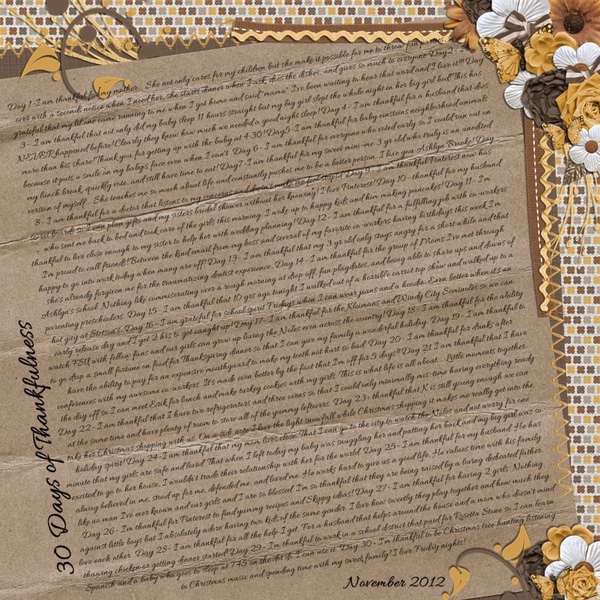 Day 1-I am thankful for my mother. She not only cares for my children but she make it possible for me to throw fun
over with a seconds notice when I need her, she starts dinner when I ask, does the dishes, and gives so much to everyone Day 2 -
grateful that my lil one came running to me when I got home and said "mama" I've been waiting to hear that word and I love it!! Day
3 - I am thankful that not only did my baby sleep 11 hours straight but my big girl slept the whole night in her big girl bed! This has
NEVER happened before! Clearly they knew how much we needed a good night sleep! Day 4 - I am thankful for a husband that does
more than his share! Thank you for getting up with the baby at 4:30! Day 5-I am thankful for baby einstein neighborhood animals
because it puts a smile on my babys face even when I can't. Day 6 - I am thankful for everyone who voted early so I could run out on
my lunch break, quickly vote, and still have time to eat! Day 7 I am thankful for my sweet mini-me 3 yr old who truly is an unedited
version of myself. She teaches me so much about life and constantly pushes me to be a better person. I love you Ashlyn Brooke! Day
8 - I am thankful for a doctor that listens to my concerns and doesn't make me feel stupid. Day 9 - I am thankful Pinterest now has
I can plan gifts and my sisters bridal shower without her knowing! I love Pinterest! Day 10 - thankful for my husband
who sent me back to bed and took care of the girls this morning. I woke up to happy kids and him making pancakes! Day 11 - I'm
thankful to live close enough to my sister to help her with wedding planning! Day 12 - I am thankful for a fulfilling job with co-workers
I'm proud to call friends! Between the kind email from my boss and several of my favorite co-workers having birthdays this week I'm
happy to go into work today when many are off! Day 13 - I am thankful that my 3 yr old only stays angry for a short while and that
she's already forgiven me for the traumatizing dentist experience. Day 14 - I am thankful for the group of Moms I've met through
Ashlyn's school. Nothing like commiserating over a rough morning at drop off, fun playdates, and being able to share ups and downs of
parenting preschoolers. Day 15 - I am thankful that 10 yrs ago tonight I walked out of a horrible carrot top show and walked up to a
hot guy at Stetson's. Day 16 - I am grateful for school spirit Fridays when I can wear jeans and a hoodie. Even better when it's an
early release day and I got 2 hrs to get caught up! Day 17 - I am thankful for the Kinsmans and Windy City Seminoles so we can
watch FSU with fellow fans and our girls can grow up loving the Noles even across the country! Day 18 - I am thankful for the ability
to go drop a small fortune on food for Thanksgiving dinner so that I can give my family a wonderful holiday. Day 19 - I am thankful to
have the ability to pay for an expensive mouthguard to make my teeth not hurt so bad. Day 20 - I am thankful for drinks after
conferences with my awesome co-workers. It's made even better by the fact that I'm off for 5 days!! Day 21 I am thankful that I have
the day off so I can meet Erik for lunch and make turkey cookies with my girls. This is what life is all about... Little moments together.
Day 22 - I am thankful that I have two refrigerators and three ovens so that I could only minimally mis-time having everything ready
at the same time and have plenty of room to store all of the yummy leftovers. Day 23- thankful that K is still young enough we can
take her Christmas shopping with us. On a side note I love the light snowfall while Christmas shopping it makes me really get into the
holiday spirit! Day 24 - I am thankful that my mom lives close. That I can go to the city to watch the Noles and not worry for one
minute that my girls are safe and loved. That when I left today my baby was snuggling her and patting her back and my big girl was so
excited to go to her house. I wouldn't trade their relationship with her for the world. Day 25 - I am thankful for my husband. He has
always believed in me, stood up for me, defended me, and loved me. He works hard to give us a good life. He values time with his family
like no man I've ever known and our girls and I are so blessed. I'm so thankful that they are being raised by a loving dedicated father.
Day 26 - I'm thankful for Pinterest to find yummy recipes and Skippy ideas! Day 27 - I am thankful for having 2 girls. Nothing
against little boys but I absolutely adore having two kids of the same gender. I love how sweetly they play together and how much they
love each other. Day 28 - I am thankful for all the help I get. For a husband that helps around the house and a mom who doesn't mind
thawing chicken or getting dinner started! Day 29 - I'm thankful to work in a school district that paid for Rosetta Stone so I can learn
Spanish and a baby who goes to sleep at 7:45 on the dot so I can use it. Day 30 - I'm thankful to be Christmas tree hunting listening
to Christmas music and spending time with my sweet family! I love Friday nights!
30 Days of Thankfulness
November 2012